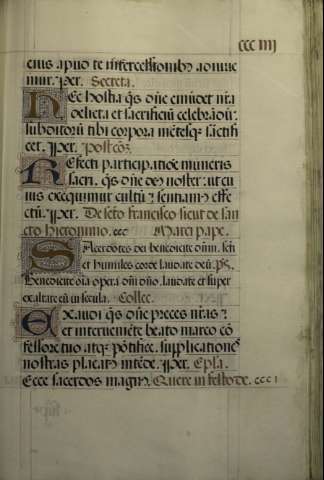 ccc iiij
eius apud te intercessionibꝫ adiuue
mur. Per. Secreta.
HEc hostia q̄s dn̄e emūdet nr̄a
delicta et sacrificiū celebrādū:
subditoꝝ tibi corpora mētesqꝫ sāctifi
cet. Per. Postcōẽ.
REfecti participatiōe muneris
sacri. q̄s dn̄e deꝰ noster: ut cu
ius exequimur cultū ⁊ sentiamꝰ effe
ctū. Per. De sctō francisco sicut de san
cto hieronimo. ccc Marci pape.
SAcerdotes dei benedicite dn̄m. scti
et humiles corde laudate deū. ps̄.
Benedicite oīa opera dn̄i dn̄o. laudate et super
exaltate eū in secula. Collec.
EXaudi q̄s dn̄e preces nr̄as ⁊
et interueniēte beato marco cō
fessore tuo atqꝫ pōtifice. supplicationes
nostras placatꝰ intēde. Per. Epl̄a.
Ecce sacerdos magnꝰ. Quere in festo de. ccc i